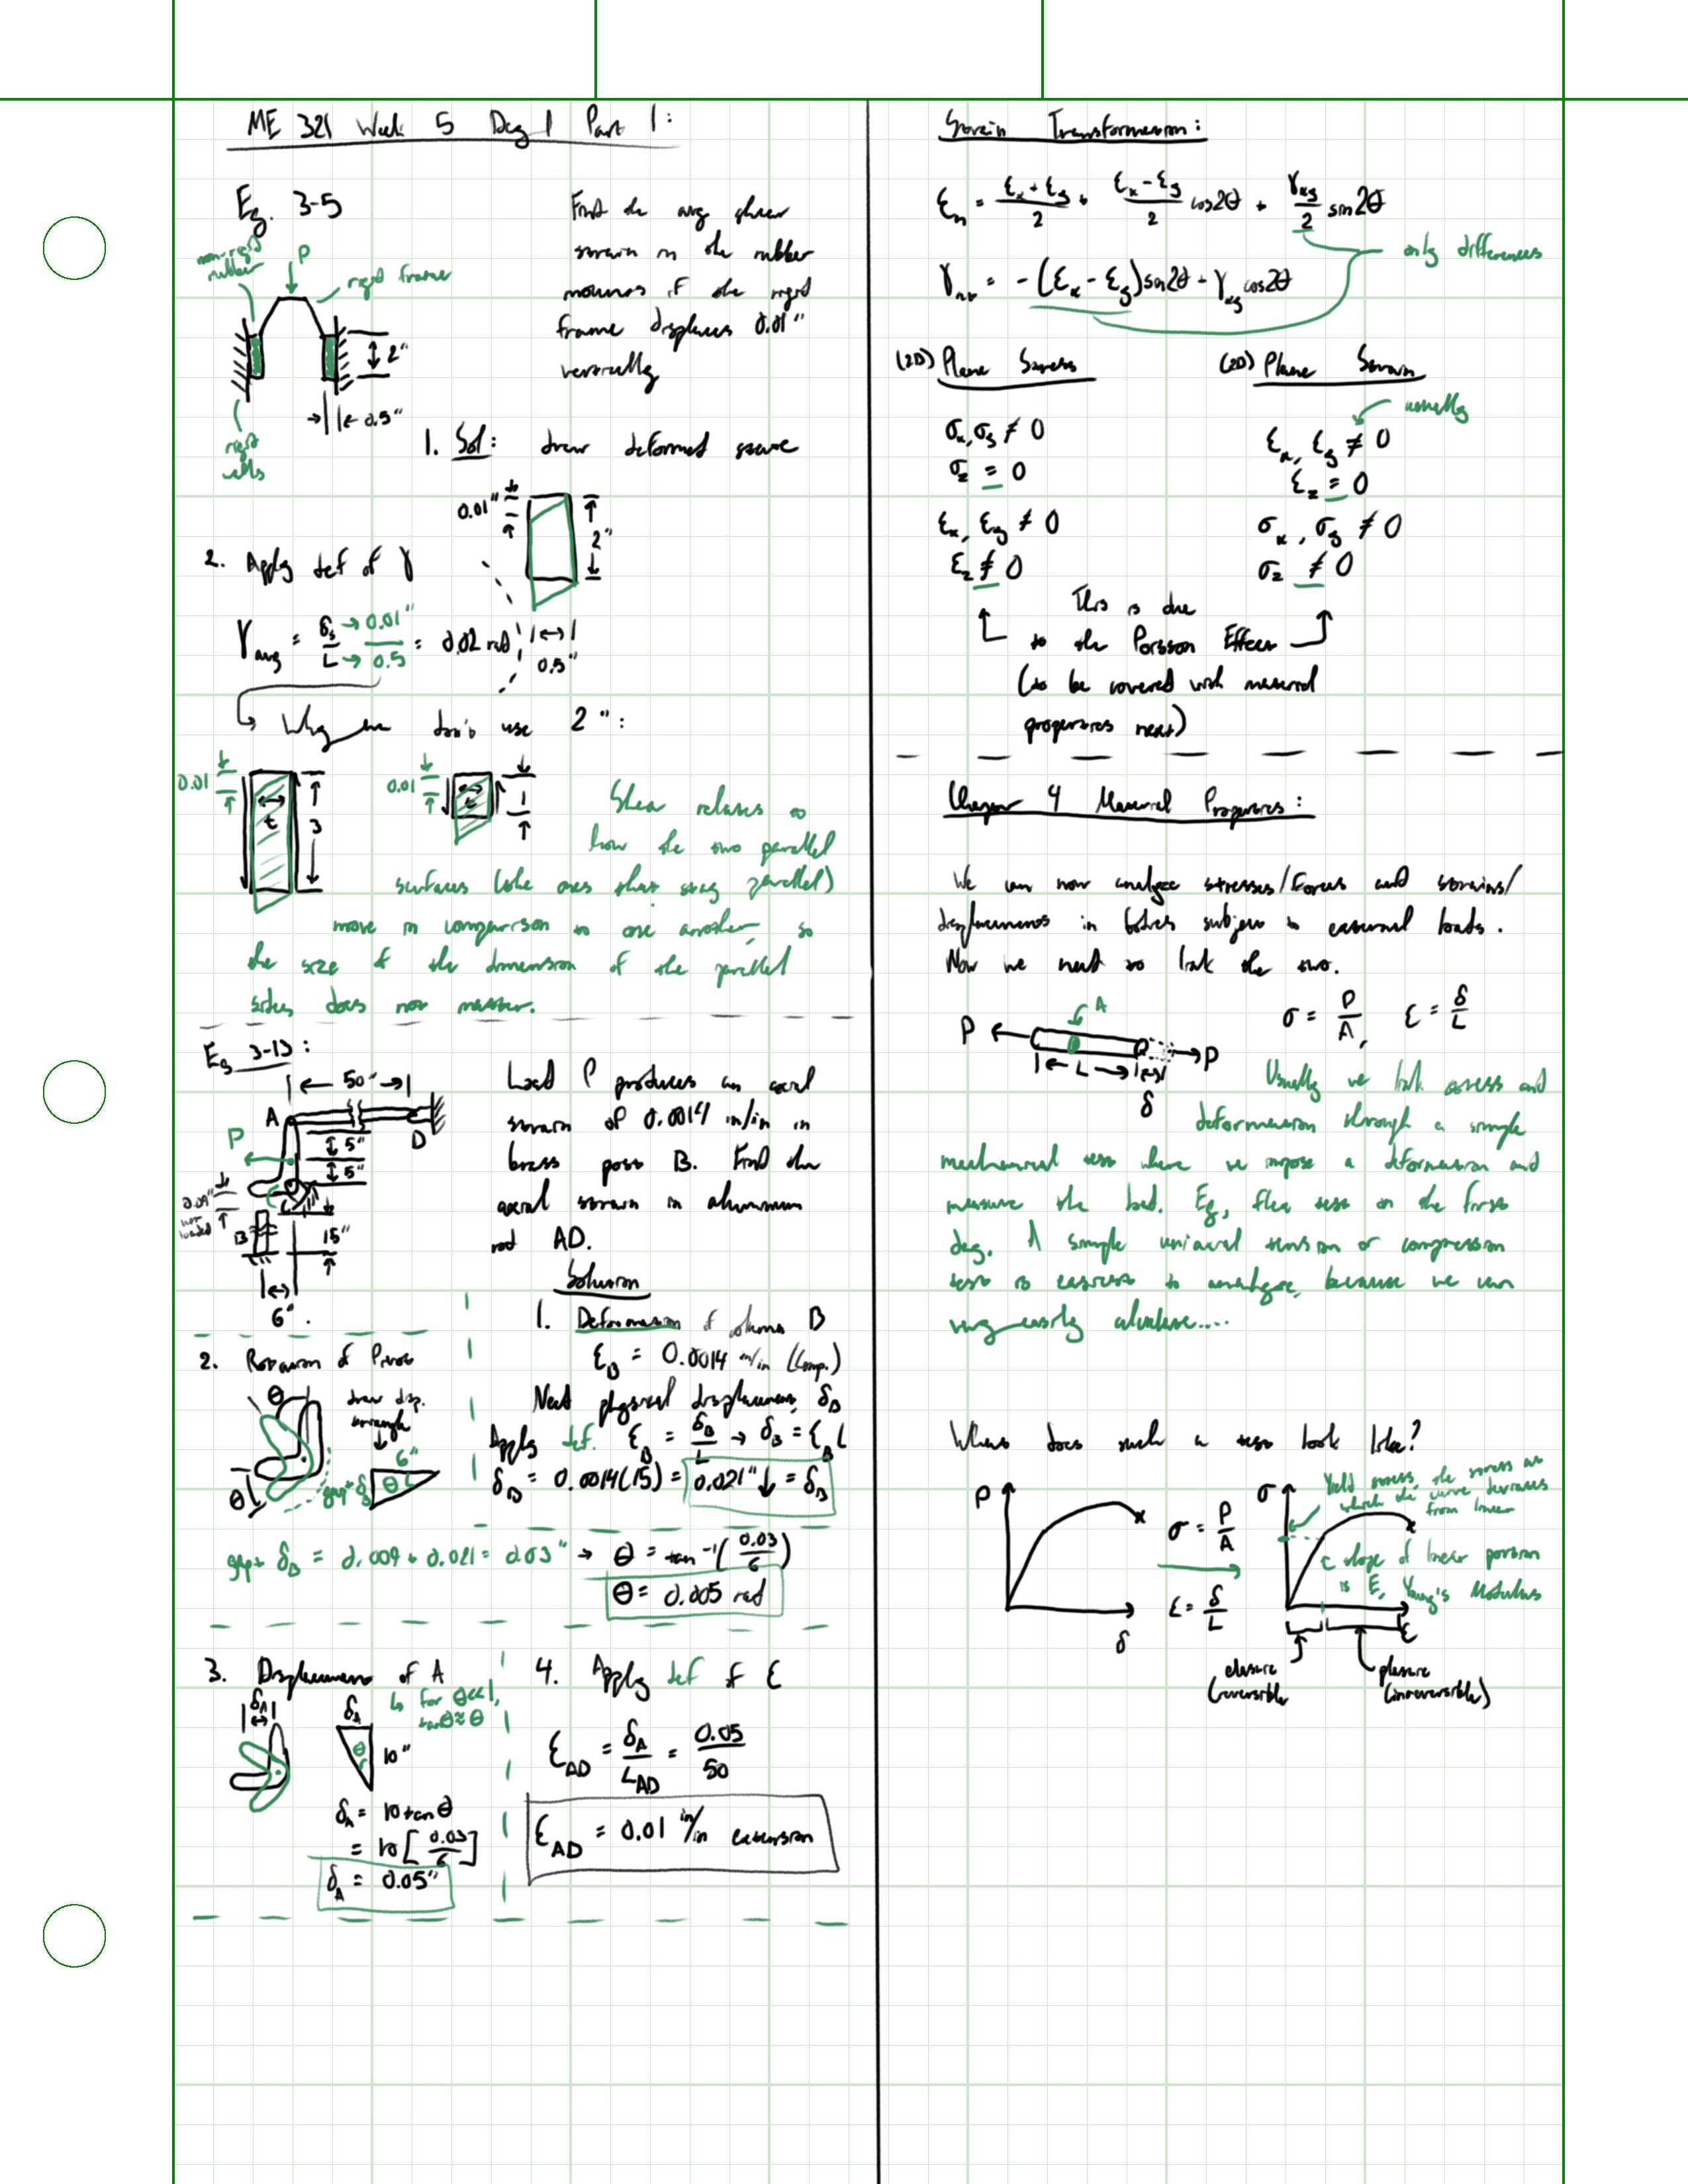 ME 321 Week 5 Day 1 Part 1:
Eg. 3-5
Find the avg shear
strain in the rubber
mounts if the rigid
frame displaces 0.01"
vertically
non-rigid
rubber
P
rigid frame
2"
0.5"
rigid
walls
1. Sol: draw deformed state
0.01"
2"
0.5"
2. Apply def of γ
γavg = δs/L → 0.01"/0.5 = 0.02 rad
Why we don't use 2":
0.01
t
3
0.01
t
1
Shear relates to
how the two parallel
surfaces (the ones that stay parallel)
move in comparison to one another, so
the size of the dimension of the parallel
sides does not matter.
Eg 3-13:
50"
A
D
P
5"
5"
C
0.09"
not
loaded
B
15"
6"
Load P produces an axial
strain of 0.0014 in/in in
brass post B. Find the
axial strain in aluminum
rod AD.
Solution
1. Deformation of column B
εB = 0.0014 in/in (Comp.)
Need physical displacement, δB
Apply def. εB = δB/L → δB = εB L
δB = 0.0014(15) = 0.021"↓ = δB
2. Rotation of Pivot
θ
draw disp.
triangle
6"
θ
gap+δB
θ
gap+ δB = 0.009+0.021 = 0.03" → θ = tan⁻¹(0.03/6)
θ = 0.005 rad
3. Displacement of A
↳ for θ<<1,
tanθ≈θ
δA
δA
θ
10"
δA = 10tanθ
= 10[0.03/6]
δA = 0.05"
4. Apply def of ε
εAD = δA/LAD = 0.05/50
εAD = 0.01 in/in extension
Strain Transformation:
εn = (εx + εy)/2 + (εx - εy)/2 cos2θ + γxy/2 sin2θ
only differences
γnt = -(εx - εy)sin2θ + γxy cos2θ
(2D) Plane Stress
σx, σy ≠ 0
σz = 0
εx, εy ≠ 0
εz ≠ 0
(2D) Plane Strain
usually
εx, εy ≠ 0
εz = 0
σx, σy ≠ 0
σz ≠ 0
This is due
to the Poisson Effect
(to be covered with material
properties next)
Chapter 4 Material Properties:
We can now analyze stresses/forces and strains/
displacements in bodies subject to external loads.
Now we need to link the two.
A
P
P
L
δ
σ = P/A, ε = δ/L
Usually we link stress and
deformation through a simple
mechanical test where we impose a deformation and
measure the load. Eg, flex test on the first
day. A simple uniaxial tension or compression
test is easiest to analyze, because we can
very easily calculate....
What does such a test look like?
P
δ
σ = P/A
ε = δ/L
σ
ε
Yield stress, the stress at
which the curve deviates
from linear
slope of linear portion
is E, Young's Modulus
elastic
(reversible
plastic
(irreversible)